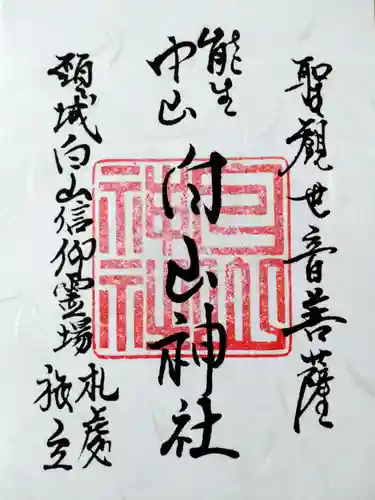 聖観世音菩薩
能生
中山
白山神社
頚城白山信仰霊場
札處
白山神社